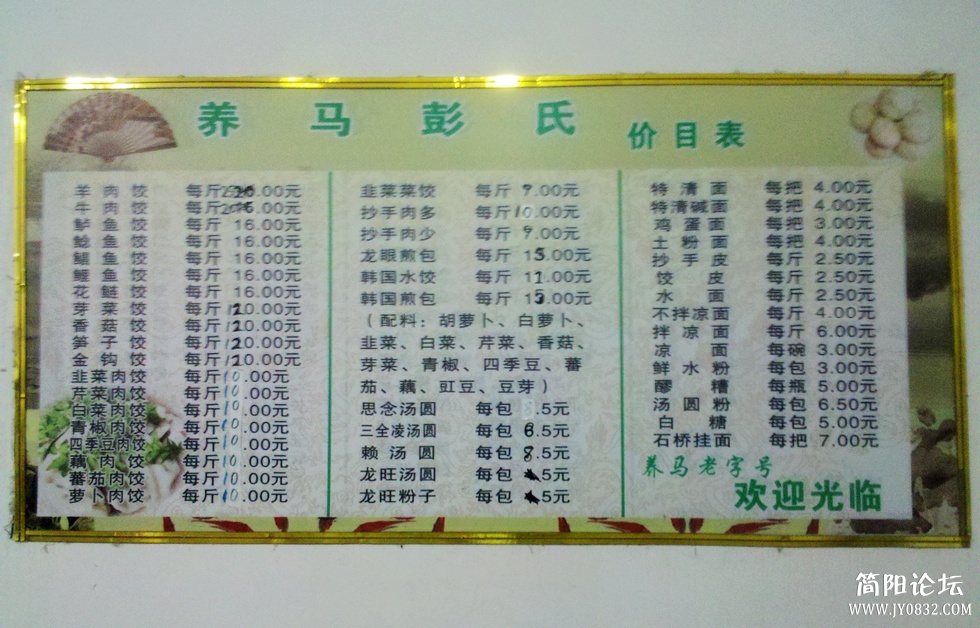 养马彭氏 价目表
羊肉饺 每斤
牛肉饺 每斤
鲈鱼饺 每斤 16.00元
鲶鱼饺 每斤 16.00元
鲴鱼饺 每斤 16.00元
鲤鱼饺 每斤 16.00元
花鲢饺 每斤 16.00元
芽菜饺 每斤 12.00元
香菇饺 每斤 12.00元
笋子饺 每斤 12.00元
金钩饺 每斤 12.00元
韭菜肉饺 每斤 10.00元
芹菜肉饺 每斤 10.00元
白菜肉饺 每斤 10.00元
青椒肉饺 每斤 10.00元
四季豆肉饺 每斤 10.00元
藕肉饺 每斤 10.00元
蕃茄肉饺 每斤 10.00元
萝卜肉饺 每斤 10.00元
韭菜菜饺 每斤 9.00元
抄手肉多 每斤 10.00元
抄手肉少 每斤 9.00元
龙眼煎包 每斤 15.00元
韩国水饺 每斤 11.00元
韩国煎包 每斤 15.00元
（配料：胡萝卜、白萝卜、
韭菜、白菜、芹菜、香菇、
芽菜、青椒、四季豆、蕃
茄、藕、豇豆、豆芽）
思念汤圆 每包 .5元
三全凌汤圆 每包 6.5元
赖汤圆 每包 8.5元
龙旺汤圆 每包 .5元
龙旺粉子 每包 .5元
特清面 每把 4.00元
特清碱面 每把 4.00元
鸡蛋面 每把 3.00元
土粉面 每把 4.00元
抄手皮 每斤 2.50元
饺皮 每斤 2.50元
水面 每斤 2.50元
不拌凉面 每斤 4.00元
拌凉面 每斤 6.00元
凉面 每碗 3.00元
鲜水粉 每包 3.00元
醪糟 每瓶 5.00元
汤圆粉 每包 6.50元
白糖 每包 5.00元
石桥挂面 每把 7.00元
养马老字号
欢迎光临
简阳论坛
WWW.JY0832.COM